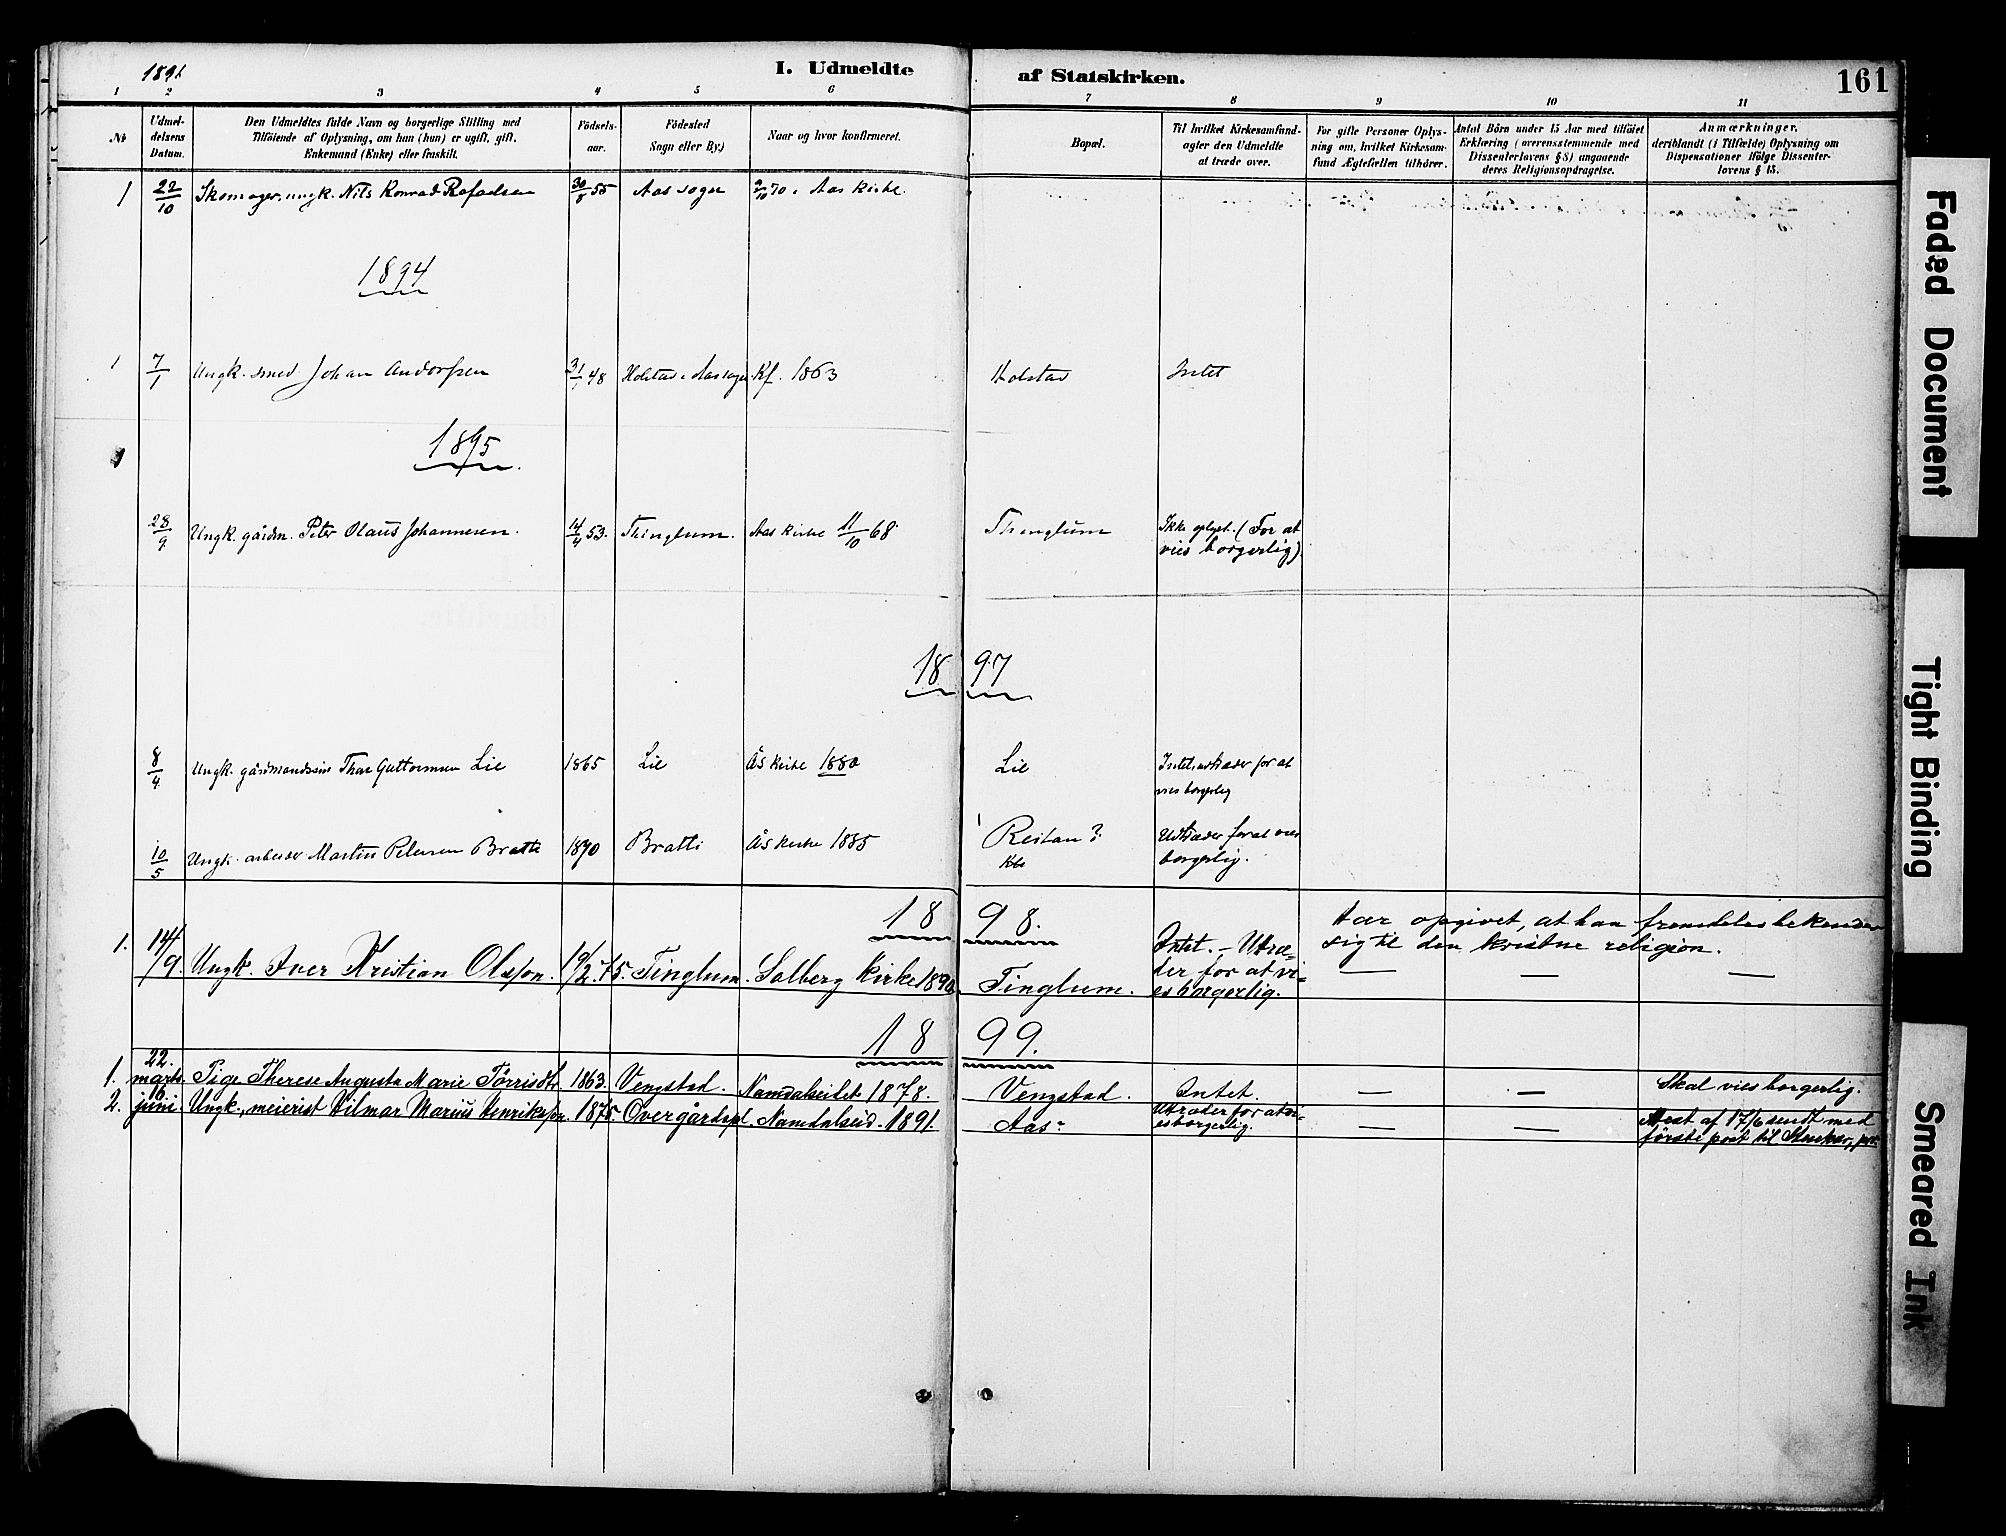 1891
I. Udmeldte af Statskirken.
161
1 2 3 4 5 6 7 8 9 10 11
No
Udmel-
delsens
Datum.
Den Udmeldtes fulde Navn og borgerlige Stilling med
Tilföiende af Oplysning, om han (hun) er ugift, gift,
Enkemand (Enke) eller fraskilt.
Födsels-
aar.
Födested
Sogn eller By.)
Naar og hvor konfirmeret.
Bopæl.
Til hvilket Kirkesamfund-
agter den Udmeldte
at træde over.
For gifte Personer Oplys-
ning om, hvilket Kirkesam-
fund Ægtefællen tilhörer.
Antal Börn under 15 Aar med tilföiet
Erklæring (overensstemmende med
Dissenterlovens § 8) angaaende
deres Religionsopdragelse.
Anmærkninger,
deriblandt (i Tilfælde) Oplysning om
Dispensationer ifölge Dissenter-
lovens § 15.
1 22/10 Skomager, ungk. Nils Konrad Rafaelsen 30/8 55 Aas sogn 2/10 70 i Aas kirke.
1894
1 7/1 Ungk. smed Johan Andorsen 31/1 48 Holstad i Aas sogn Kf. 1863 Holstad Intet
1895.
28/9 Ungk. gårdm. Peter Olaus Johannesen. 14/4 53. Thinglum. Aas kirke 11/10 68 Thinglum Ikke oplyst. (For at
vies borgerlig)
1897
8/4 Ungk. gårdmandssøn Thor Guttormsen Lie 1865 Lie Ås kirke 1880 Lie Intet, udtræder for at
vies borgerlig
10/5 Ungk. arbeider Martin Petersen Bratli 1870 Bratli Ås kirke 1885 Reitan? Udtræder for at vies
borgerlig.
1898.
1. 14/9. Ungk. Iver Kristian Olsson. 19/2 75. Tinglum. Solberg kirke 1890. Tinglum. Intet. – Utræ-
der for at vi-
es borgerlig.
Har opgivet, at han fremdeles bekender
sig til den kristne religion.
— — —
1899.
1. 22. marts. Pige Therese Augusta Marie Tørrisdtr. 1863. Vengstad. Namdalseidet 1878. Vengstad. Intet. — — Skal vies borgerlig.
2. 16. juni. Ungk., meierist Hilmar Marius Henriksson. 1875. Overgårdspl. Namdalseid. 1891. Aas Utræder for at vi-
es borgerlig. — — Attest af 17/6 sendt med
første post til Stenkær,
Faded Document
Tight Binding
Smeared Ink